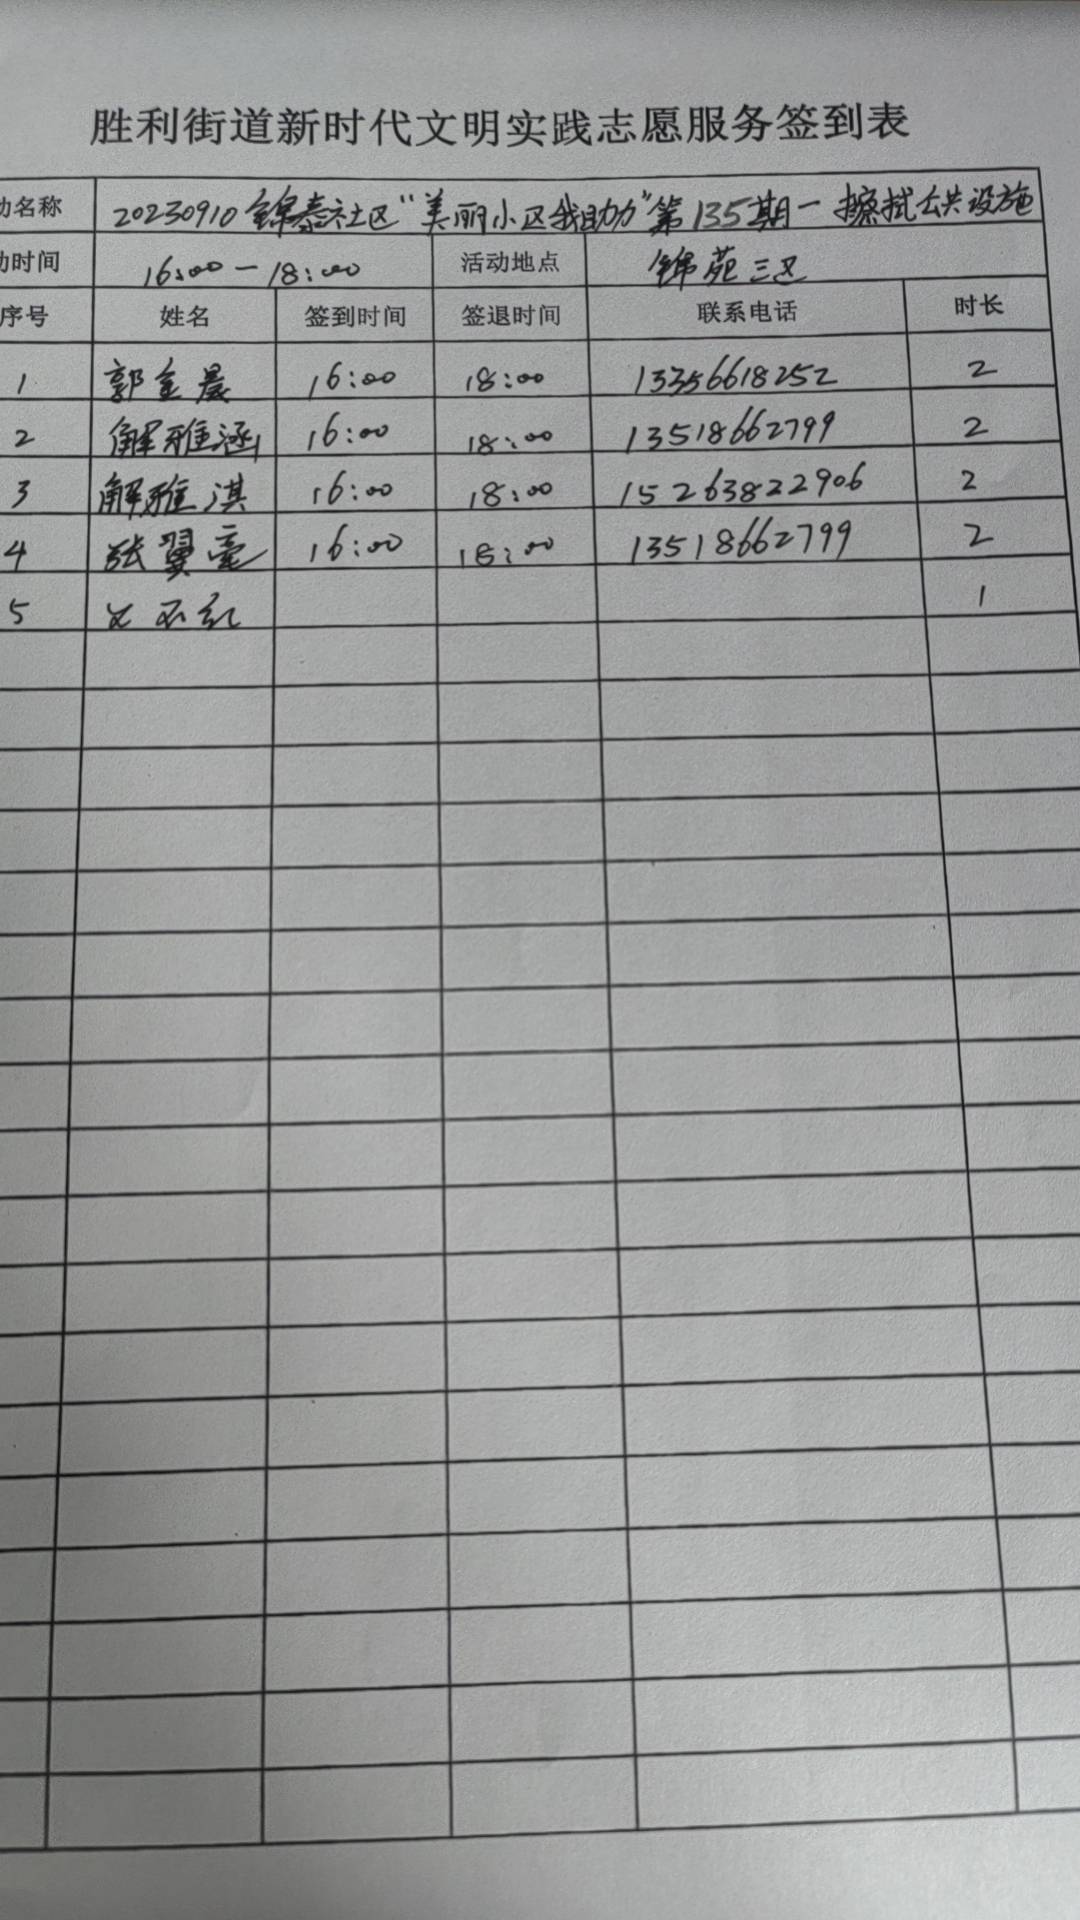 胜利街道新时代文明实践志愿服务签到表
动名称 20230910锦泰社区“美丽小区我助力”第135期—擦拭公共设施
动时间 16:00—18:00 活动地点 锦苑三区
序号 姓名 签到时间 签退时间 联系电话 时长
1 郭金晨 16:00 18:00 13356618252 2
2 解雅涵 16:00 18:00 13518662799 2
3 解雅淇 16:00 18:00 15263822906 2
4 张翼毫 16:00 18:00 13518662799 2
5 1